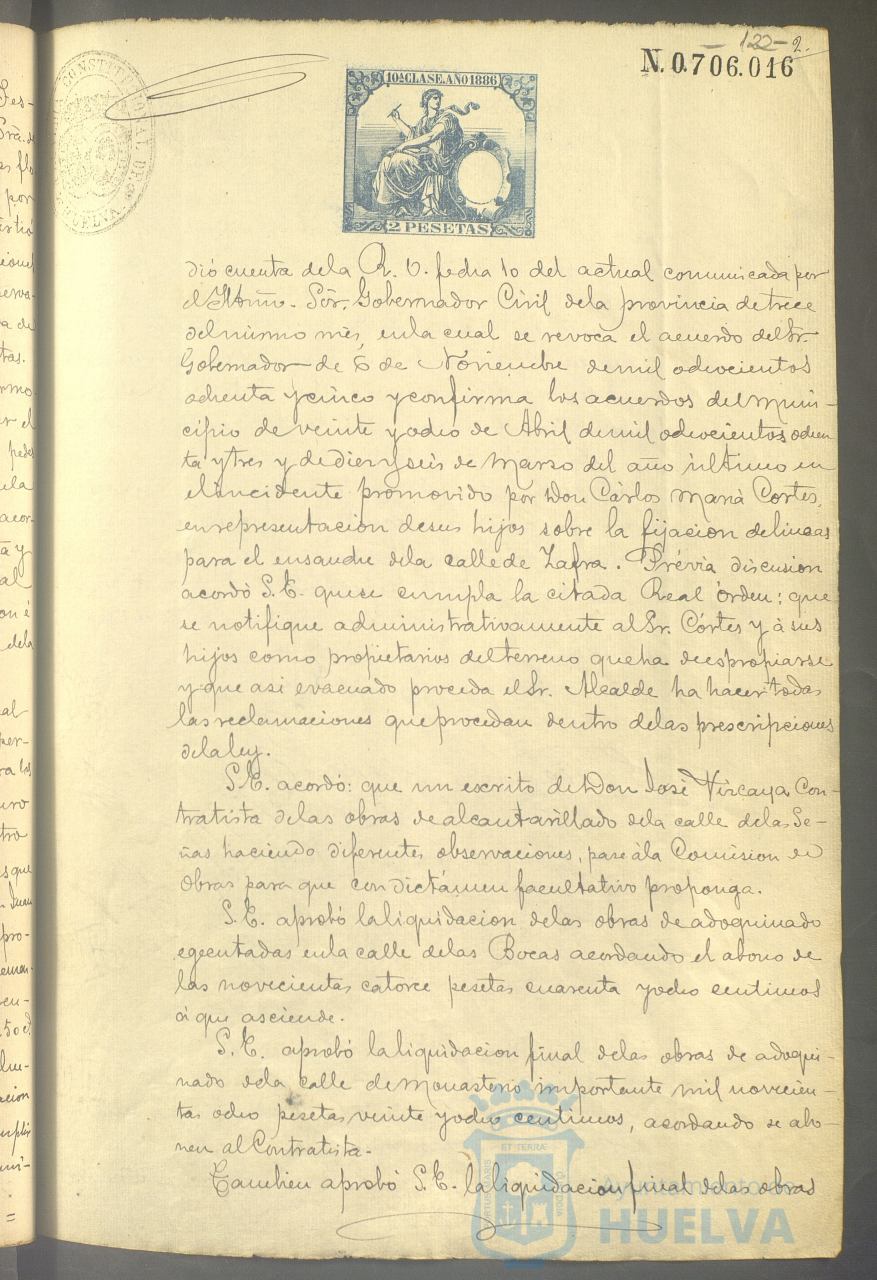 122-2.
N. 0.706.016
10ª CLASE. AÑO 1886
2 PESETAS
CONSTITUCIONAL DE
HUELVA
dió cuenta dela R. O. fecha 10 del actual comunicada por
el Iltmo. Sōr. Gobernador Civil dela provincia de trece
del mismo mes, en la cual se revoca el acuerdo del Sr.
Gobernador de 6 de Noviembre de mil ochocientos
ochenta y cinco y confirma los acuerdos del Muni-
cipio de veinte y ocho de Abril de mil ochocientos ochen
ta y tres y de diez y seis de Marzo del año último en
el incidente promovido por Don Cárlos Mariá Cortes,
en representacion desus hijos sobre la fijacion de lineas
para el ensanche dela calle de Zafra. Prévia discusion
acordó S.E. quese cumpla la citada Real órden; que
se notifique administrativamente al Sr. Córtes y á sus
hijos como propietarios del terreno que ha de espropiarse
y que asi evacuado proceda el Sr. Alcalde ha hacer todas
las reclamaciones que procedan dentro delas prescripciones
dela ley.
S.E. acordó: que un escrito de Don José Vizcaya Con-
tratista delas obras de alcantarillado dela calle delas Se-
ñas haciendo diferentes observaciones, pase ála Comision de
Obras para que con dictámen facultativo proponga.
S.E. aprobó la liquidacion delas obras de adoquinado
egecutadas en la calle delas Bocas acordando el abono de
las novecientas catorce pesetas cuarenta y ocho centimos
á que asciende.
S.E. aprobó la liquidacion final delas obras de adoqui-
nado dela calle de Monasterio importante mil novecien-
tas ocho pesetas veinte y ocho centimos, acordando se abo-
nen al Contratista.
Tambien aprobó S.E. la liquidacion final delas obras
Ayuntamiento de
HUELVA